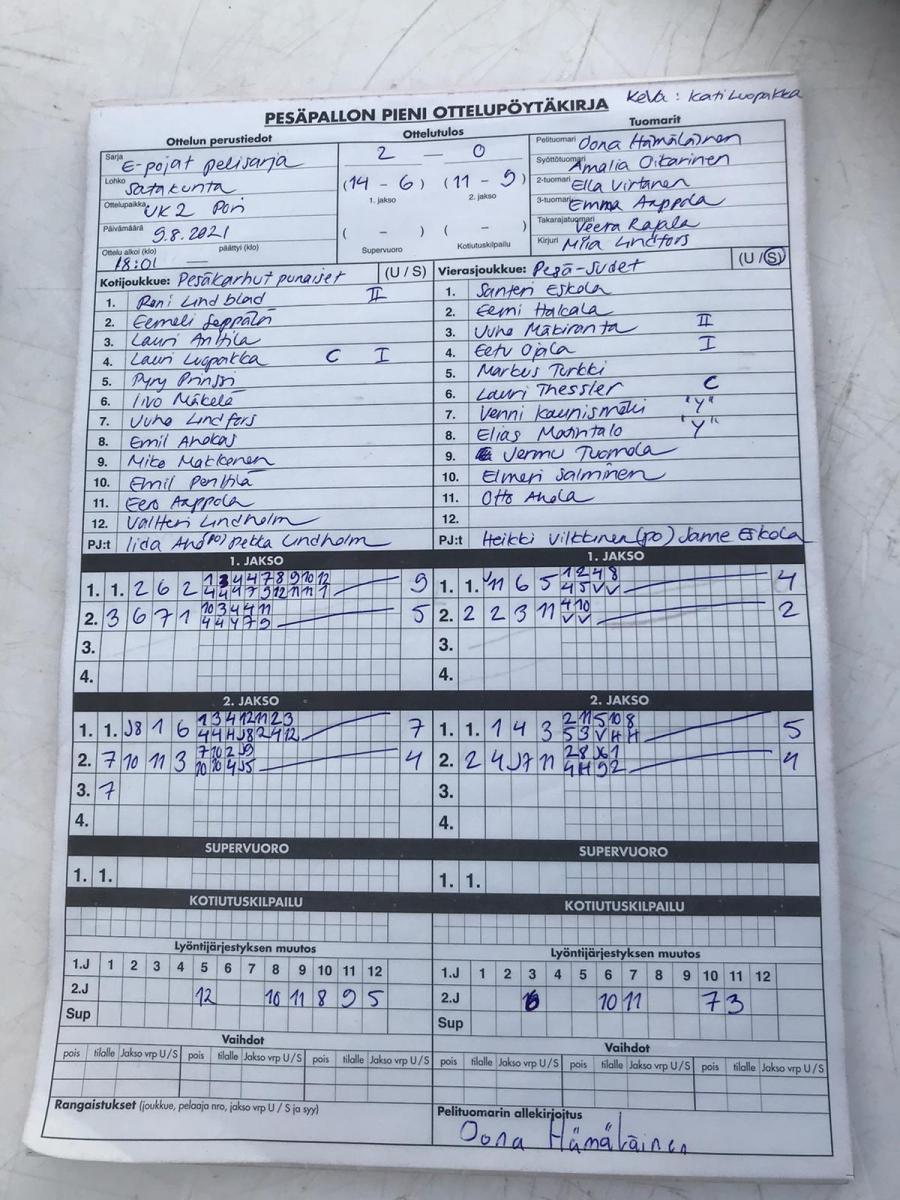 Keva : Kati Luopakka
PESÄPALLON PIENI OTTELUPÖYTÄKIRJA
Ottelun perustiedot
Sarja E-pojat pelisarja
Lohko Satakunta
Ottelupaikka UK2 Pori
Päivämäärä 9.8.2021
Ottelu alkoi (klo) 18:01 — päättyi (klo)
Ottelutulos
2 — 0
(14 - 6) (11 - 9)
1. jakso 2. jakso
( - ) ( - )
Supervuoro Kotiutuskilpailu
Tuomarit
Pelituomari Oona Hämäläinen
Syöttötuomari Amalia Oitarinen
2-tuomari Ella Virtanen
3-tuomari Emma Aappola
Takarajatuomari Veera Rajala
Kirjuri Miia Lindfors
Kotijoukkue: Pesäkarhut punaiset (U / S)
1. Roni Lindblad II
2. Eemeli Seppälä
3. Lauri Anttila
4. Lauri Luopakka C I
5. Pyry Prinssi
6. Iivo Mäkelä
7. Juho Lindfors
8. Emil Ahokas
9. Miko Makkonen
10. Emil Penttilä
11. Eero Aappola
12. Valtteri Lindholm
PJ:t Iida Aho(po) Pekka Lindholm
Vierasjoukkue: Pesä-Sudet (U / S)
1. Santeri Eskola
2. Eemi Hakala
3. Juho Mäkiranta II
4. Eetu Ojala I
5. Markus Turkki
6. Lauri Thessler C
7. Venni Kaunismäki "Y"
8. Elias Matintalo "Y"
9. Vermu Tuomola
10. Elmeri Salminen
11. Otto Ahola
12.
PJ:t Heikki Vilkkinen (po) Janne Eskola
1. JAKSO
1. 1. 2 6 2 9
2. 3 6 7 1 5
3.
4.
1. JAKSO
1. 1. 11 6 5 4
2. 2 2 3 11 2
3.
4.
2. JAKSO
1. 1. J8 1 6 7
2. 7 10 11 3 4
3. 7
4.
2. JAKSO
1. 1. 1 4 3 5
2. 2 4 J7 11 4
3.
4.
SUPERVUORO
1. 1.
SUPERVUORO
1. 1.
KOTIUTUSKILPAILU
KOTIUTUSKILPAILU
Lyöntijärjestyksen muutos
1.J 1 2 3 4 5 6 7 8 9 10 11 12
2.J 12 10 11 8 9 5
Sup
Lyöntijärjestyksen muutos
1.J 1 2 3 4 5 6 7 8 9 10 11 12
2.J 6 10 11 7 3
Sup
Vaihdot
pois tilalle Jakso vrp U / S pois tilalle Jakso vrp U / S pois tilalle Jakso vrp U / S
Vaihdot
pois tilalle Jakso vrp U / S pois tilalle Jakso vrp U / S pois tilalle Jakso vrp U / S
Rangaistukset (joukkue, pelaaja nro, jakso vrp U / S ja syy)
Pelituomarin allekirjoitus
Oona Hämäläinen